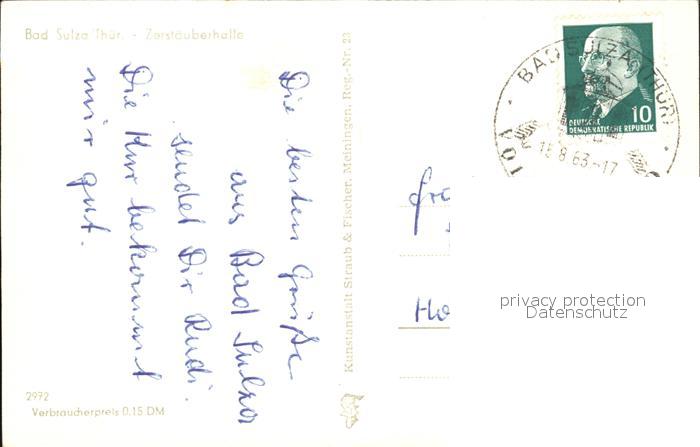 Bad Sulza Thür. - Zerstäuberhalle
Die besten Grüße
aus Bad Sulza
sendet Dir Rudi.
Die Kur bekommt
mir gut.
2972
Verbraucherpreis 0.15 DM
Kunstanstalt Straub & Fischer, Meiningen, Reg.-Nr. 23
BAD SULZA (THÜR)
15.8.63-17
10
DEUTSCHE
DEMOKRATISCHE REPUBLIK
privacy protection
Datenschutz